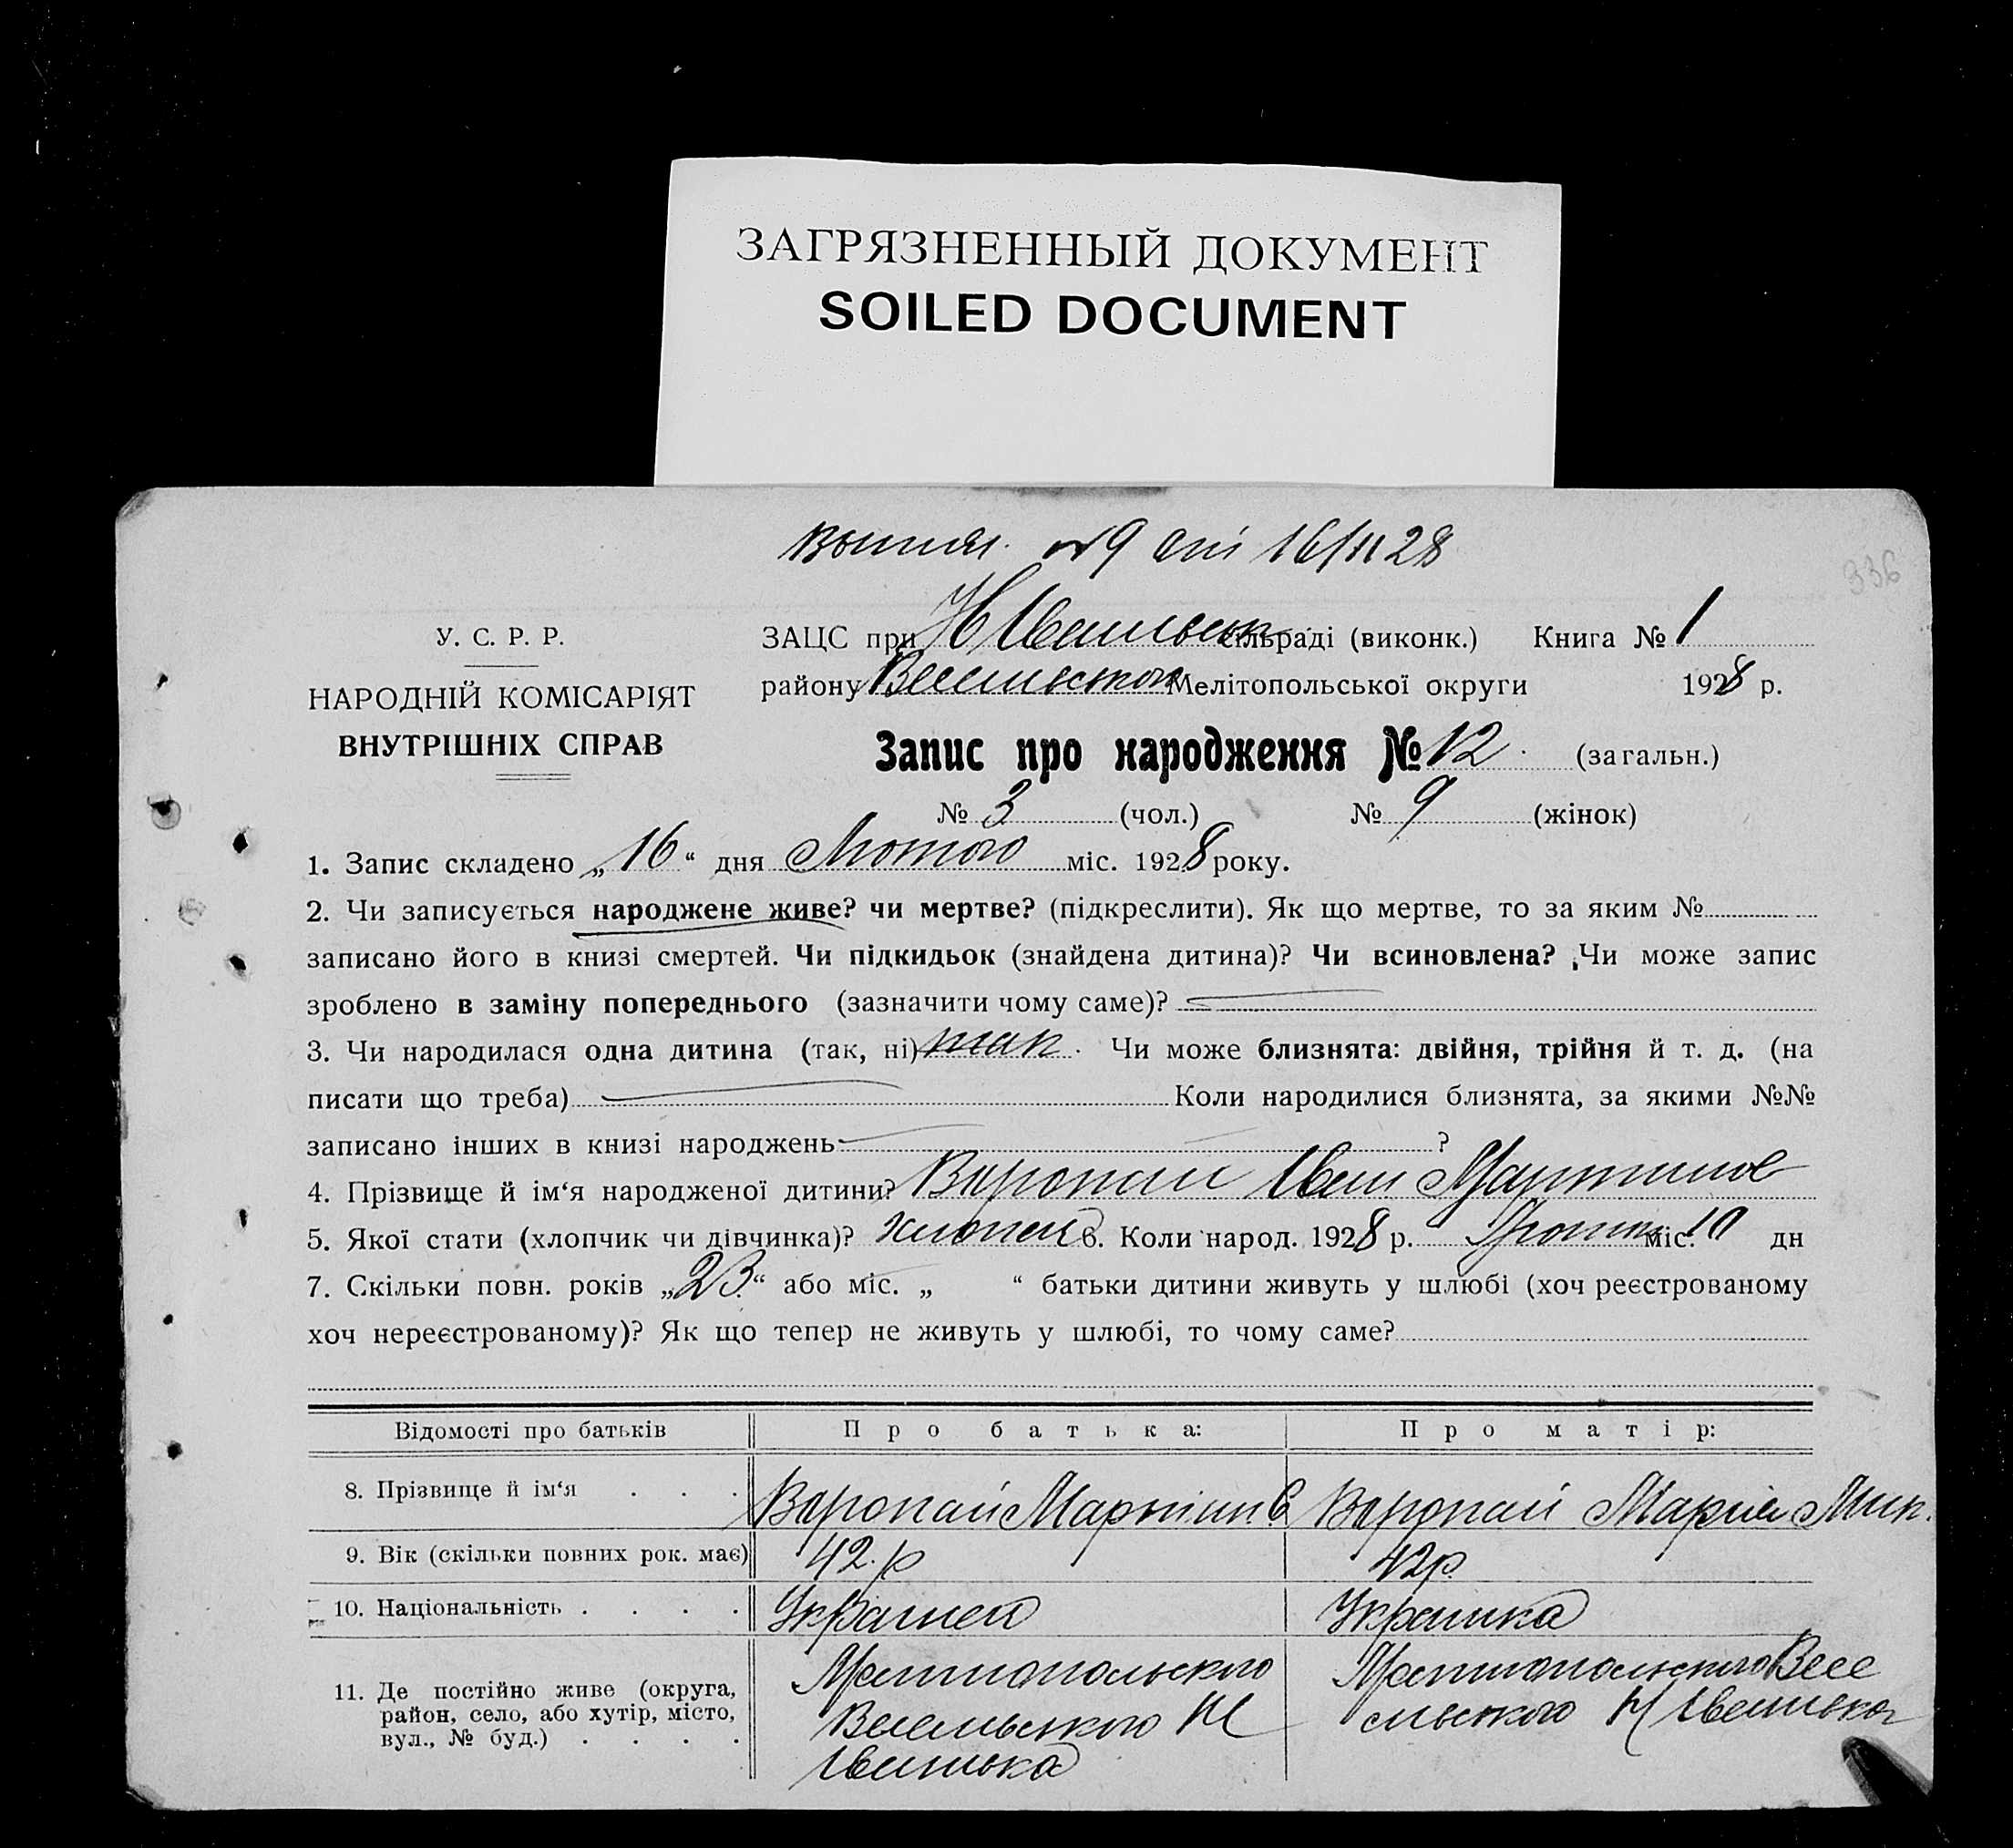 ЗАГРЯЗНЕННЫЙ ДОКУМЕНТ
SOILED DOCUMENT
№9 16/II 28
336
У. С. Р. Р.
НАРОДНІЙ КОМІСАРІЯТ
ВНУТРІШНІХ СПРАВ
ЗАЦС при сільраді (виконк.) Книга № 1
району Мелітопольської округи 1928 р.
Запис про народження № 12 (загальн.)
№ 3 (чол.) № 9 (жінок)
1. Запис складено „16“ дня Лютого міс. 1928 року.
2. Чи записується народжене живе? чи мертве? (підкреслити). Як що мертве, то за яким №
записано його в книзі смертей. Чи підкидьок (знайдена дитина)? Чи всиновлена? Чи може запис
зроблено в заміну попереднього (зазначити чому саме)?
3. Чи народилася одна дитина (так, ні) так. Чи може близнята: двійня, трійня й т. д. (на
писати що треба) Коли народилися близнята, за якими №№
записано інших в книзі народжень ?
4. Прізвище й ім‘я народженої дитини? Воропай Іван Мартинов
5. Якої стати (хлопчик чи дівчинка)? хлопец 6. Коли народ. 1928 р. міс. дн
7. Скільки повн. років „23“ або міс. „ “ батьки дитини живуть у шлюбі (хоч реєстрованому
хоч нереєстрованому)? Як що тепер не живуть у шлюбі, то чому саме?
Відомості про батьків Про батька: Про матір:
8. Прізвище й ім‘я . . . Воропай Мартин Воропай Марія Мик.
9. Вік (скільки повних рок. має) 42.р 42р.
10. Національність . . . . Українец Українка
11. Де постійно живе (округа,
район, село, або хутір, місто,
вул., № буд.) . . . .
Мелітопольського
Весельського Н
Іванівка
Мелітопольського Весе
льського Н Іванівка